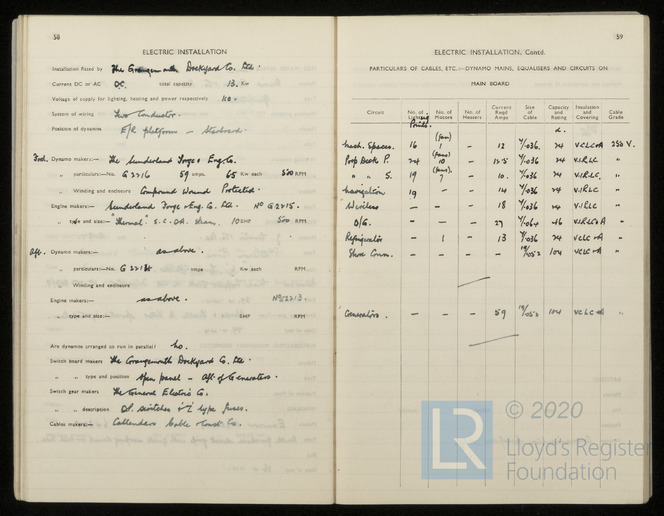 58
ELECTRIC INSTALLATION
Installation fitted by The Grangemouth Dockyard Co. Ltd.
Current DC or AC DC. total capacity 13. Kw
Voltage of supply for lighting, heating and power respectively 110.
System of wiring Two Conductor.
Position of dynamos E/R platform - Starboard.
Ford. Dynamo makers:— The Sunderland Forge & Eng Co.
„ particulars:—No. G 2216 59 amps. 65 Kw each 500 RPM
„ Winding and enclosure Compound Wound Protected.
Engine makers:— Sunderland Forge & Eng. Co. Ltd. No G 2215.
„ type and size:— "Thermal" S.C. DA. Steam. 10 BHP 500 RPM
Aft. Dynamo makers:— as above.
„ particulars:—No. amps Kw each RPM
Winding and enclosure
Engine makers:— as above.
„ type and size:— BHP RPM
Are dynamos arranged to run in parallel? No.
Switch board makers The Grangemouth Dockyard Co. Ltd.
„ „ type and position Open panel - Aft of Generators.
Switch gear makers The General Electric Co.
„ „ description D.P. switches & type fuses.
Cables makers:— Callenders Cable & Const Co.
59
ELECTRIC INSTALLATION, Contd.
PARTICULARS OF CABLES, ETC.—DYNAMO MAINS, EQUALISERS AND CIRCUITS ON
MAIN BOARD
Circuit No. of Lighting Points. No. of Motors No. of Heaters Current Reqd Amps Size of Cable Capacity and Rating Insulation and Covering Cable Grade
Mach. Spaces. 16 (fan) 1 — 12 7/036. 24 VCLC&A 250 V.
Prop Deck P. 24 (fans) 10 — 12.5 7/036 24 V.I.R.L.C „
„ „ S. 19 (fans). 7 — 10. 7/036. 24 V.I.R.L.C. „
Navigation 19 — — 14 7/036 24 V.I.R.L.C „
Wireless — — — 18 7/036 24 V.I.R.L.C „
D/G. — — — 27 7/064 46 V.I.R.L.C&A „
Refrigerator — 1 — 13 7/036 24 VCLC&A „
Shore Conn. — — — — 19/052 104 VCLC&A „
Generators. — — — 59 19/052 104 VCLC&A „
LR
© 2020
Lloyd's Register
Foundation